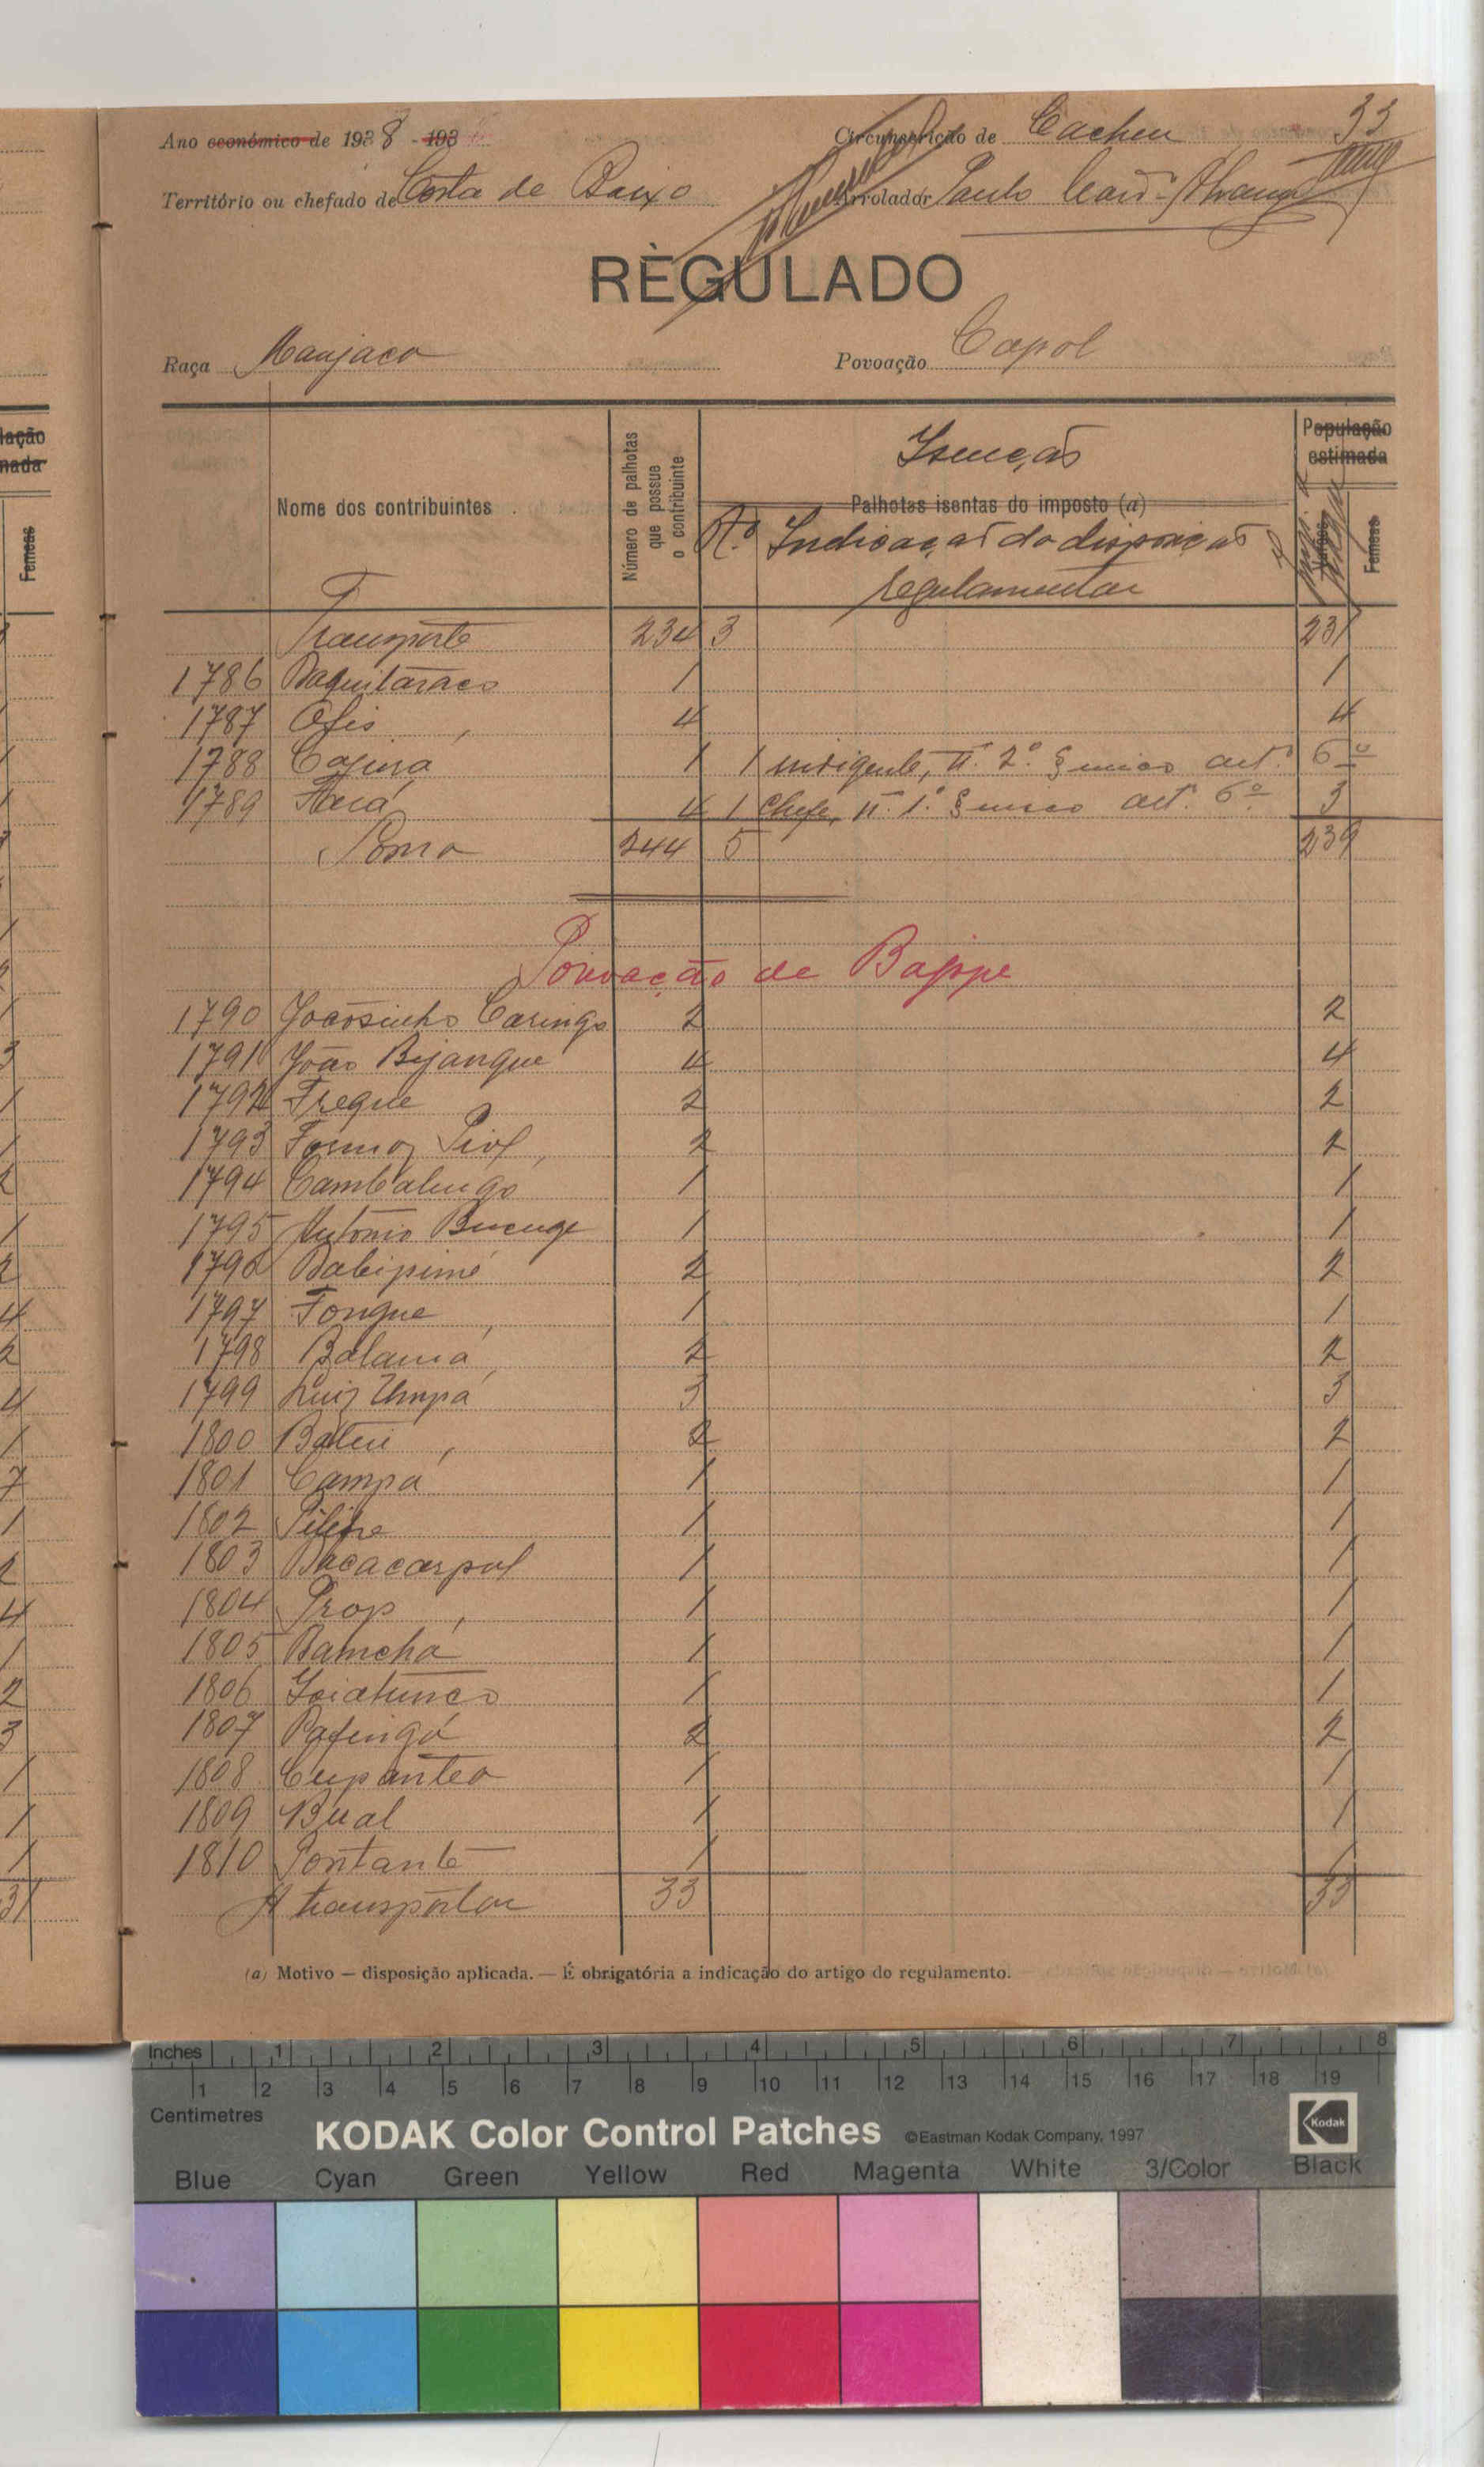 Ano económico de 1938 - 193
Circunscrição de Cacheu
33
Território ou chefado de Costa de Baixo
Arrolador Paulo
REGULADO
Raça Manjaco
Povoação Capol
lação
nada
Femeas
Nome dos contribuintes
Número de palhotas
que possue
o contribuinte
Isenção
Palhotas isentas do imposto (a)
N.º Indicação da disposição
regulamentar
População
estimada
Femeas
Transporte 234 3 231
1786 Baquitaraco 1 1
1787 Ofis 4 4
1788 Cajura 1 1 indigente, n.º 2.º § unico art.º 6º
1789 4 1 Chefe, n.º 1.º § unico art. 6º 3
Soma 244 5 239
Povoação de Bajope
1790 Joãosinho Caringo 2 2
1791 João Bijangue 4 4
1792 Freque 2 2
1793 2 2
1794 Cambalengo 1 1
1795 António Bucuge 1 1
1796 Babipimé 2 2
1797 Fongue 1 1
1798 Balamá 2 2
1799 Luiz Umpá 3 3
1800 Batui 2 2
1801 Campá 1 1
1802 1 1
1803 Bacacarpol 1 1
1804 Prop 1 1
1805 Bamchá 1 1
1806 1 1
1807 Pafingá 2 2
1808 Cupanteo 1 1
1809 Bual 1 1
1810 Pontante 1 1
A transportar 33 33
(a) Motivo — disposição aplicada. — É obrigatória a indicação do artigo do regulamento.
Inches 1 2 3 4 5 6 7 8
1 2 3 4 5 6 7 8 9 10 11 12 13 14 15 16 17 18 19
Centimetres
KODAK Color Control Patches ©Eastman Kodak Company, 1997 Kodak
Blue Cyan Green Yellow Red Magenta White 3/Color Black